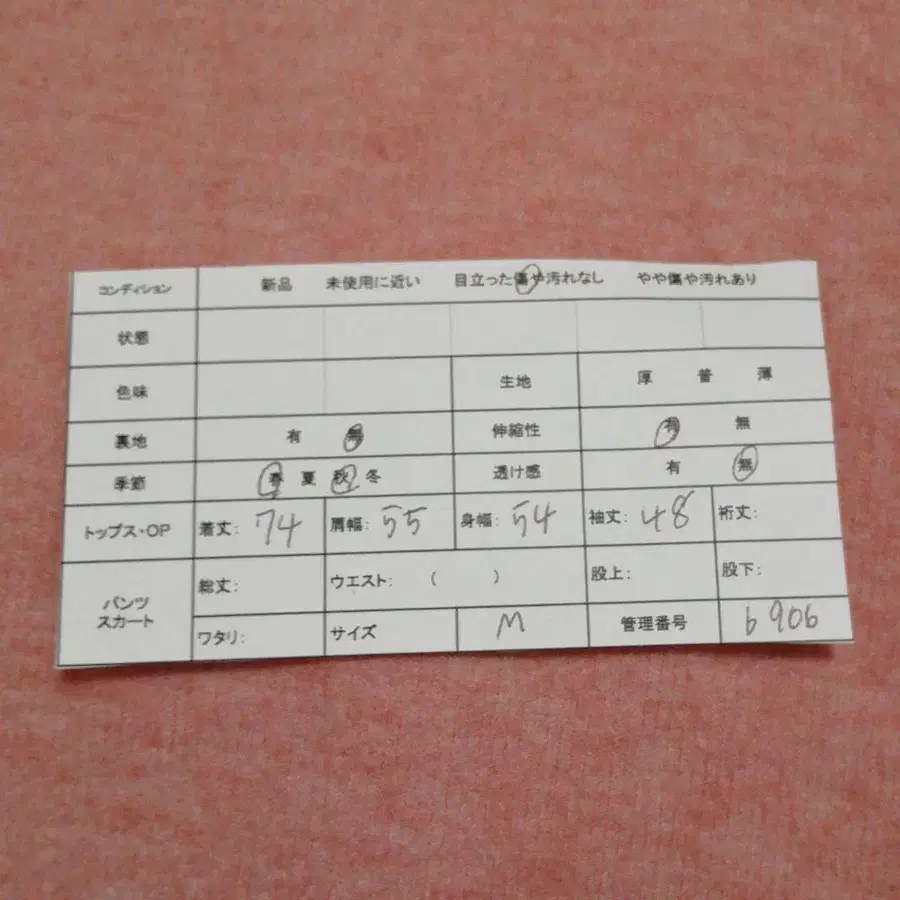 コンディション 新品 未使用に近い 目立った傷や汚れなし やや傷や汚れあり
状態
色味 生地 厚 普 薄
裏地 有 無 伸縮性 有 無
季節 春 夏 秋 冬 透け感 有 無
トップス・OP 着丈: 74 肩幅: 55 身幅: 54 袖丈: 48 裄丈:
パンツ スカート 総丈: ウエスト: ( ) 股上: 股下:
ワタリ: サイズ M 管理番号 6906